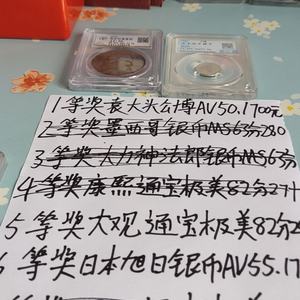 1等奖袁大头公博AV50.1700元
2等奖墨西哥银币MS63分280
3等奖大力神法郎银币MS63分
4等奖康熙通宝极美82分27
5等奖大观通宝极美82分2
6等奖日本旭日银币AV55.17